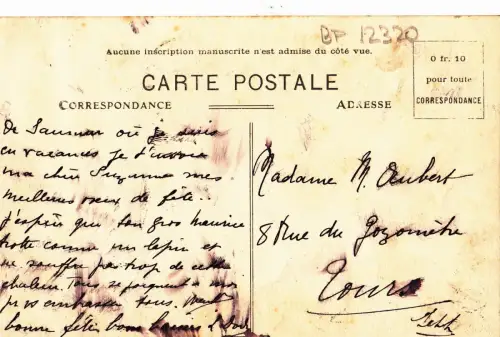 BP 12320
Aucune inscription manuscrite n'est admise du côté vue.
CARTE POSTALE
CORRESPONDANCE
ADRESSE
0 fr. 10
pour toute
CORRESPONDANCE
De Saumur où je suis
en vacances je t'envoie
ma chère Suzanne mes
meilleurs vœux de fête..
J'espère que ton gros Maurice
trotte comme un lapin et
ne souffre pas trop de cette
chaleur. Tous se joignent à moi
pr vs embrasser tous.
bonne fête bons baisers
Madame M. Aubert
8 Rue du Gazomètre
Tours